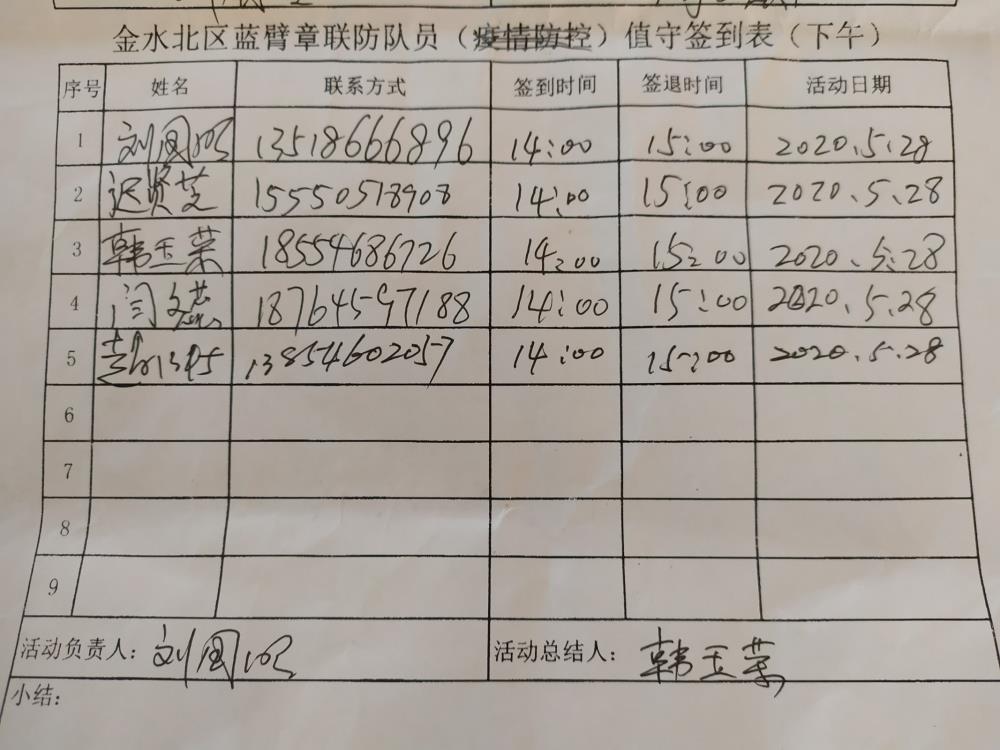 金水北区蓝臂章联防队员（疫情防控）值守签到表（下午）
序号 姓名 联系方式 签到时间 签退时间 活动日期
1 刘国明 13518666896 14:00 15:00 2020.5.28
2 迟贤芝 15550518908 14:00 15:00 2020.5.28
3 韩玉荣 18554686726 14:00 15:00 2020.5.28
4 闫 18764597188 14:00 15:00 2020.5.28
5 13854602057 14:00 15:00 2020.5.28
6
7
8
9
活动负责人：刘国明 活动总结人：韩玉荣
小结：